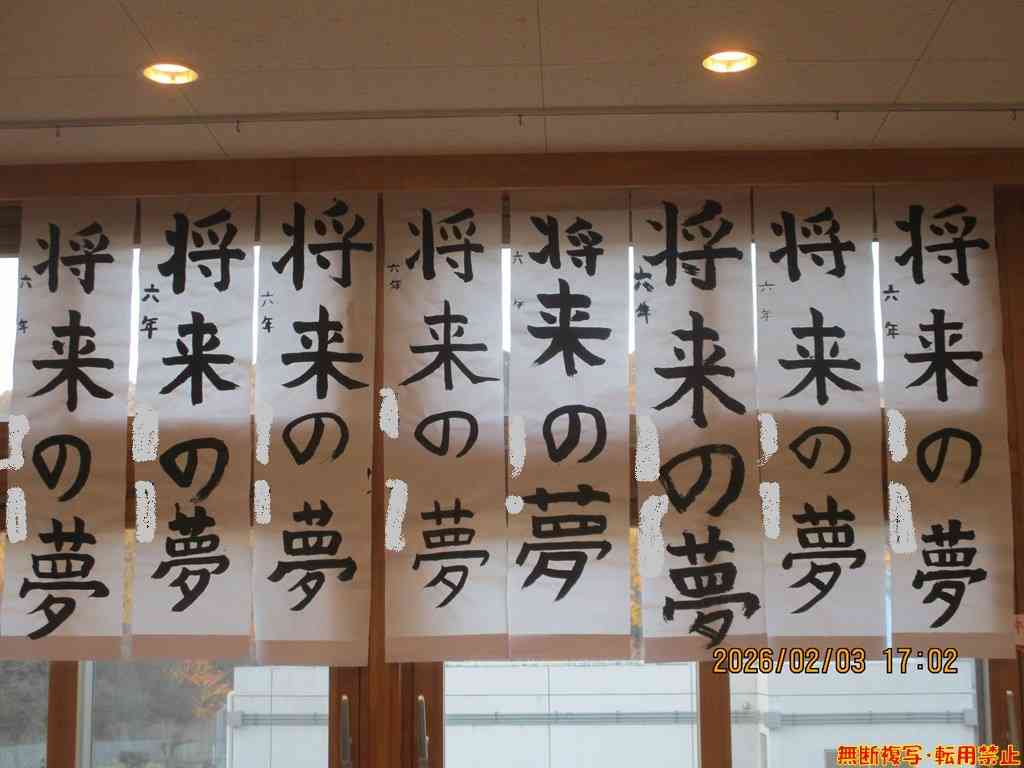 将来の夢
六年
将来の夢
六年
将来の夢
六年
将来の夢
六年
将来の夢
六年
将来の夢
六年
将来の夢
六年
将来の夢
六年
2026/02/03 17:02
無断複写・転用禁止